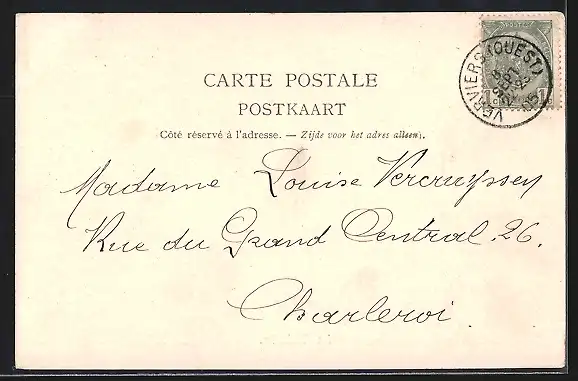 CARTE POSTALE
POSTKAART
Côté réservé à l'adresse. — Zijde voor het adres alleen.
VERVIERS (OUEST)
1
Madame Louise Vercruyssen
Rue du Grand Central. 26.
Charleroi